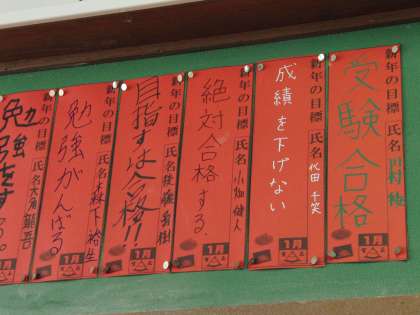 新年の目標
受験合格
氏名
1月
新年の目標
成績を下げない
氏名 代田 千笑
1月
新年の目標
絶対合格する。
氏名 小畑 健人
1月
新年の目標
目指すは合格!!
氏名 佐藤
1月
新年の目標
勉強がんばる
氏名 森下 裕生
1月
新年の目標
勉強をする。
氏名
1月